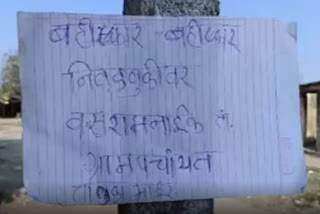 बहीष्कार बहीष्कार
निवडणुकीवर
वसरामनाईक तं.
ग्रामपंचायत
माहुर